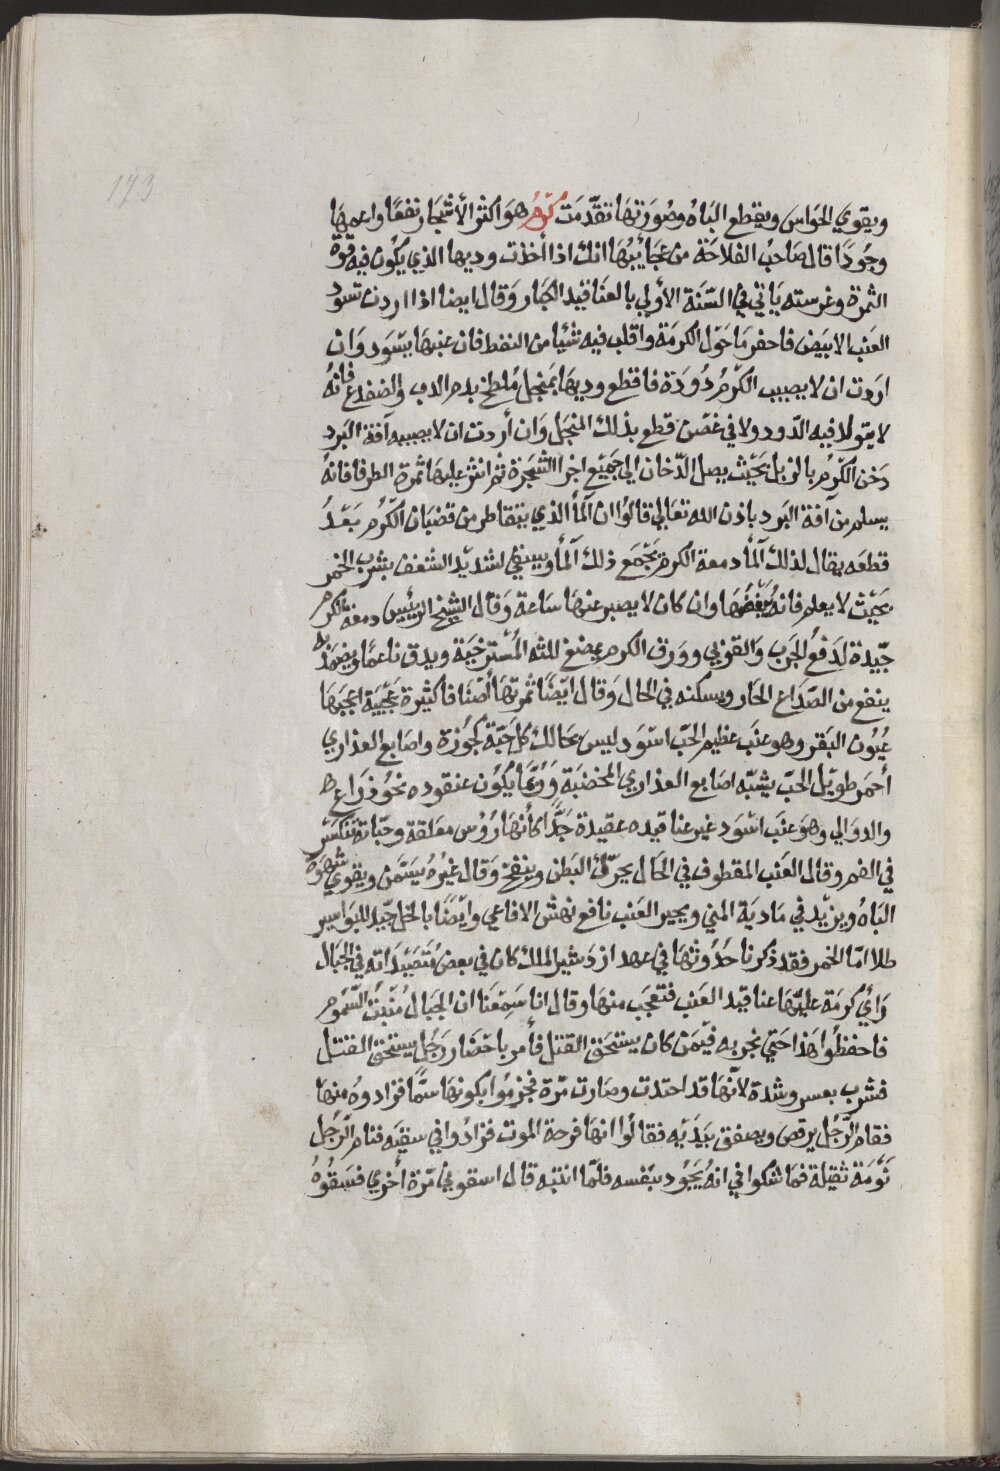 173
ويقوي الحواس ويقطع الباه وصورتها تقدمت كرم هو اكثر الأشجار نفعا واعمها
وجودا قال صاحب الفلاحة من عجائبها انك اذا أخذت وديها الذي يكون فيه قوة
الثمرة وغرسته يأتي في السنة الأولي بالعناقيد الكبار وقال ايضا اذا اردت تسود
العنب الابيض فاحفر ما حول الكرمة واقلب فيه شيأ من النفط فان عنبها يسود وان
اردت ان لا يصيب الكرم دودة فاقطع وديها بمنجل ملطخ بدم الدب والضفدع فانه
لا يتولد فيه الدود ولا في غصن قطع بذلك المنجل وان أردت ان لا يصيبه آفة البرد
دخن الكرم بالزبل بحيث يصل الدخان الي جميع اجزا الشجرة ثم انثر عليها ثمرة الطرفا فانه
يسلم من آفة البرد باذن الله تعالي قالوا ان المأ الذي يتقاطر من قضبان الكرم بعد
قطعه يقال لذلك المأ دمعة الكرم يجمع ذلك المأ ويسقي لشديد الشغف بشرب الخمر
بحيث لا يعلم فانه يبغضها وان كان لا يصبر عنها ساعة وقال الشيخ الرئيس دمعة الكرم
جيدة لدفع الجرب والقوبي وورق الكرم يمضغ للثه المسترخية ويدق ناعما ويضمد به
ينفع من الصداع الحار ويسكنه في الحال وقال ايضا ثمرتها أصنافا كثيرة عجيبة اعجبها
عيون البقر وهو عنب عظيم الحب اسود ليس بحالك كل حبة كجوزة واصابع العذاري
أحمر طويل الحب يشبه اصابع العذاري المخضبة وربما يكون عنقوده نحو ذراع
والدوالي وهو عنب اسود غير عناقيده عقيدة جدا كأنها رؤس معلقة وحباته تنكسر
في الفم وقال العنب المقطوف في الحال يحرك البطن وينفخ وقال غيره يسمن ويقوي شهوة
الباه ويزيد في مادية المني ويحير العنب نافع نهش الافاعي وايضا بالخل جيد للبواسير
طلا اما الخمر فقد ذكرنا حدوثها في عهد ازدشير الملك كان في بعض متصيداته في الجبال
رأي كرمة عليها عناقيد العنب فتعجب منها وقال انا سمعنا ان الجبال منبت السموم
فاحفظوا هذا حتي نجربه فيمن كان يستحق القتل فأمر باحضار رجل يستحق القتل
فشرب بعسر وشدة لأنها قد احتدت وصارت مرة فجزموا بكونها سما فزادوه منها
فقام الرجل يرقص ويصفق بيديه فقالوا انها فرحة الموت فزادوا في سقيه فنام الرجل
نومة ثقيلة فما شكوا في انه يجود بنفسه فلما انتبه قال اسقوني مرة أخري فسقوه